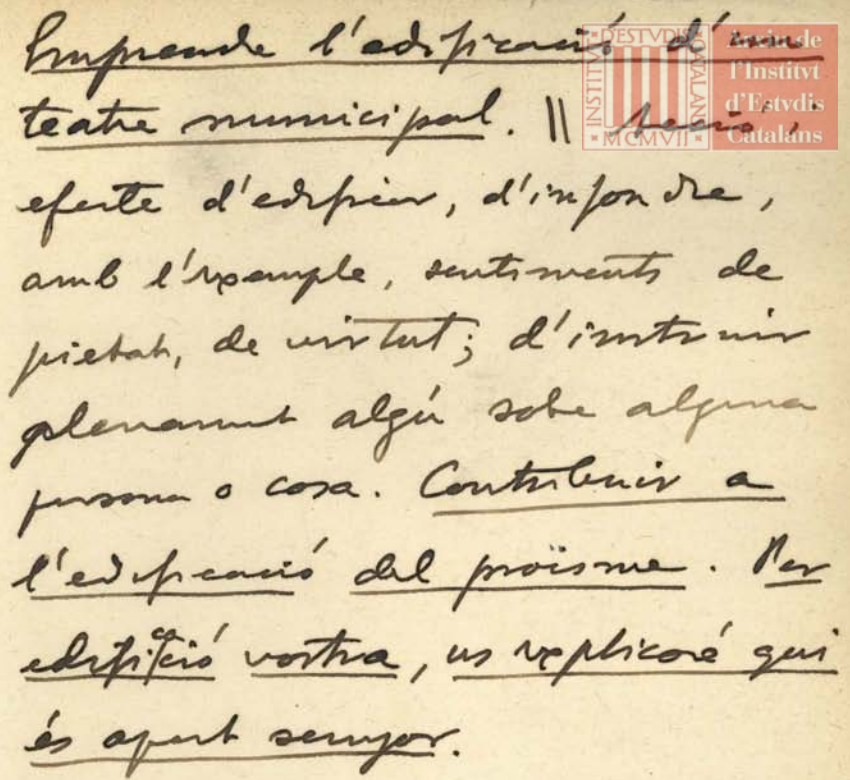 Emprendre l'edificació d'un
teatre municipal. || Acció i
efecte d'edificar, d'infondre,
amb l'exemple, sentiments de
pietat, de virtut; d'instruir
plenament algú sobre alguna
persona o cosa. Contribuir a
l'edificació del proïsme. Per
edificació vostra, us explicaré qui
és aquest senyor.
INSTITVT D'ESTVDIS CATALANS
MCMVII
Arxiu de
l'Institvt
d'Estvdis
Catalans